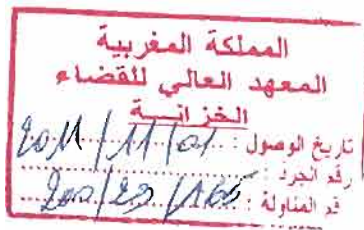 المملكة المغربية
المعهد العالي للقضاء
الخزانة
تاريخ الوصول : 2011/11/01
رقم الجرد :
قم المناولة : 200/29/165